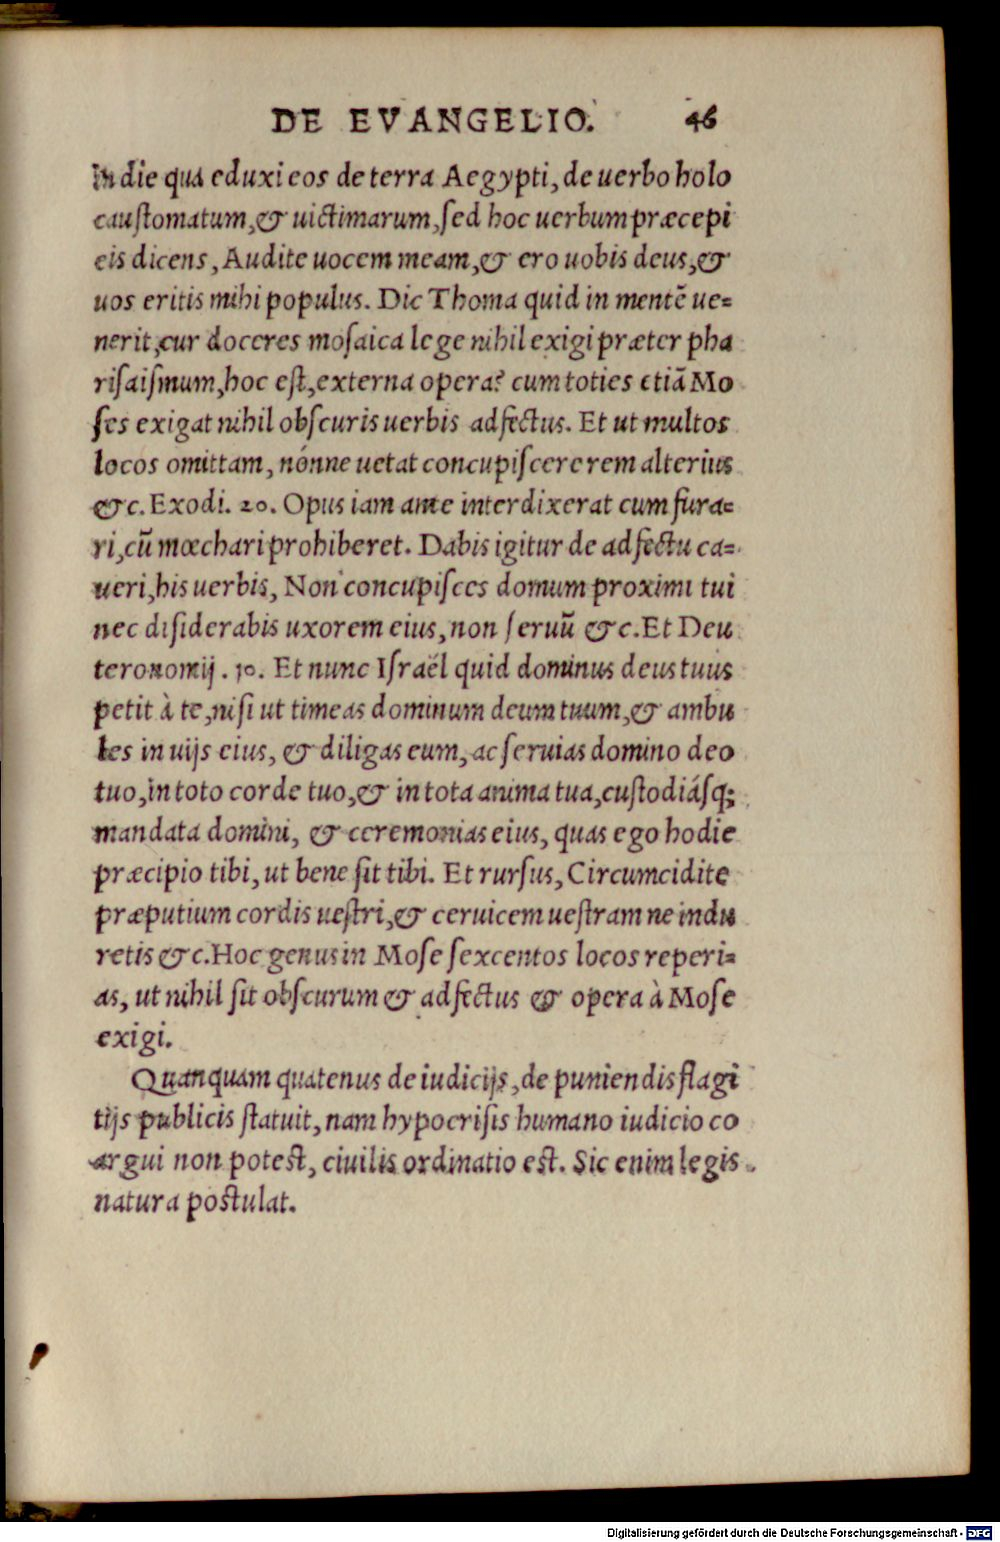 DE EVANGELIO. 46
in die qua eduxi eos de terra Aegypti, de uerbo holo
caustomatum, & uictimarum, sed hoc uerbum præcepi
eis dicens, Audite uocem meam, & ero uobis deus, &
uos eritis mihi populus. Dic Thoma quid in mentē ue=
nerit, cur doceres mosaica lege nihil exigi præter pha
risaismum, hoc est, externa opera? cum toties etiā Mo
ses exigat nihil obscuris uerbis adfectus. Et ut multos
locos omittam, nónne uetat concupiscere rem alterius
&c. Exodi. 20. Opus iam ante interdixerat cum fura=
ri, cū mœchari prohiberet. Dabis igitur de adfectu ca=
ueri, his uerbis, Non concupisces domum proximi tui
nec disiderabis uxorem eius, non seruū &c. Et Deu
teronomij . 10. Et nunc Israël quid dominus deus tuus
petit à te, nisi ut timeas dominum deum tuum, & ambu
les in uijs eius, & diligas eum, ac seruias domino deo
tuo, in toto corde tuo, & in tota anima tua, custodiásq;
mandata domini, & ceremonias eius, quas ego hodie
præcipio tibi, ut bene sit tibi. Et rursus, Circumcidite
præputium cordis uestri, & ceruicem uestram ne indu
retis &c. Hoc genus in Mose sexcentos locos reperi=
as, ut nihil sit obscurum & adfectus & opera à Mose
exigi.
Quanquam quatenus de iudicijs, de puniendis flagi
tijs publicis statuit, nam hypocrisis humano iudicio co
argui non potest, ciuilis ordinatio est. Sic enim legis
natura postulat.
Digitalisierung gefördert durch die Deutsche Forschungsgemeinschaft - DFG